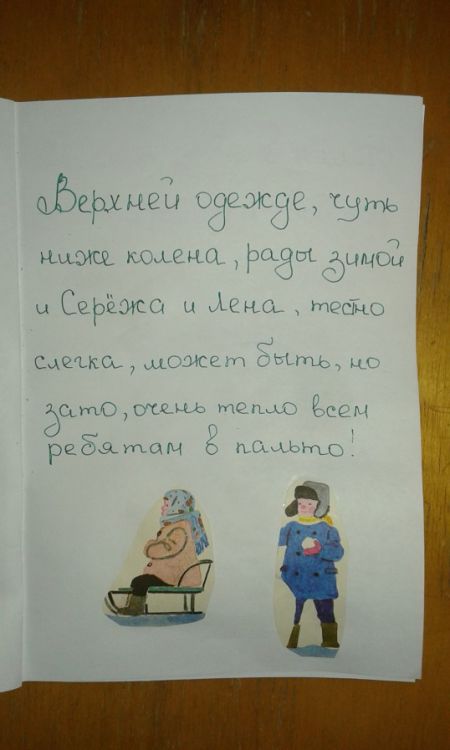 Верхней одежде, чуть
ниже колена, рады зимой
и Серёжа и Лена, тестно
слегка, может быть, но
зато, очень тепло всем
ребятам в пальто!